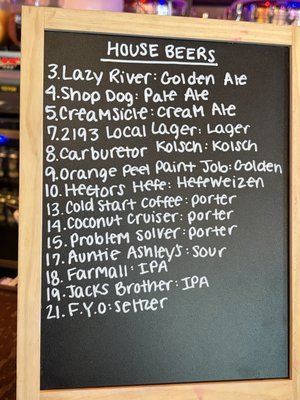 HOUSE BEERS
3. Lazy River: Golden Ale
4. Shop Dog: Pale Ale
5. Creamsicle: Cream Ale
7. 2193 Local Lager: Lager
8. Carburetor Kolsch: Kolsch
9. Orange Peel Paint Job: Golden
10. Hectors Hefe: Hefeweizen
13. Cold Start Coffee: Porter
14. Coconut Cruiser: Porter
15. Problem Solver: Porter
17. Auntie Ashley's: Sour
18. Farmall: IPA
19. Jacks Brother: IPA
21. F.Y.O: Seltzer